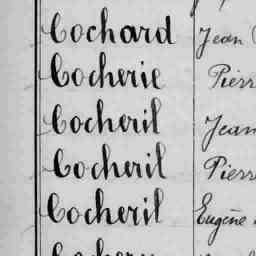 Cochard Jean
Cocherie Pierr
Cocheril Jean
Cocheril Pierr
Cocheril Eugène